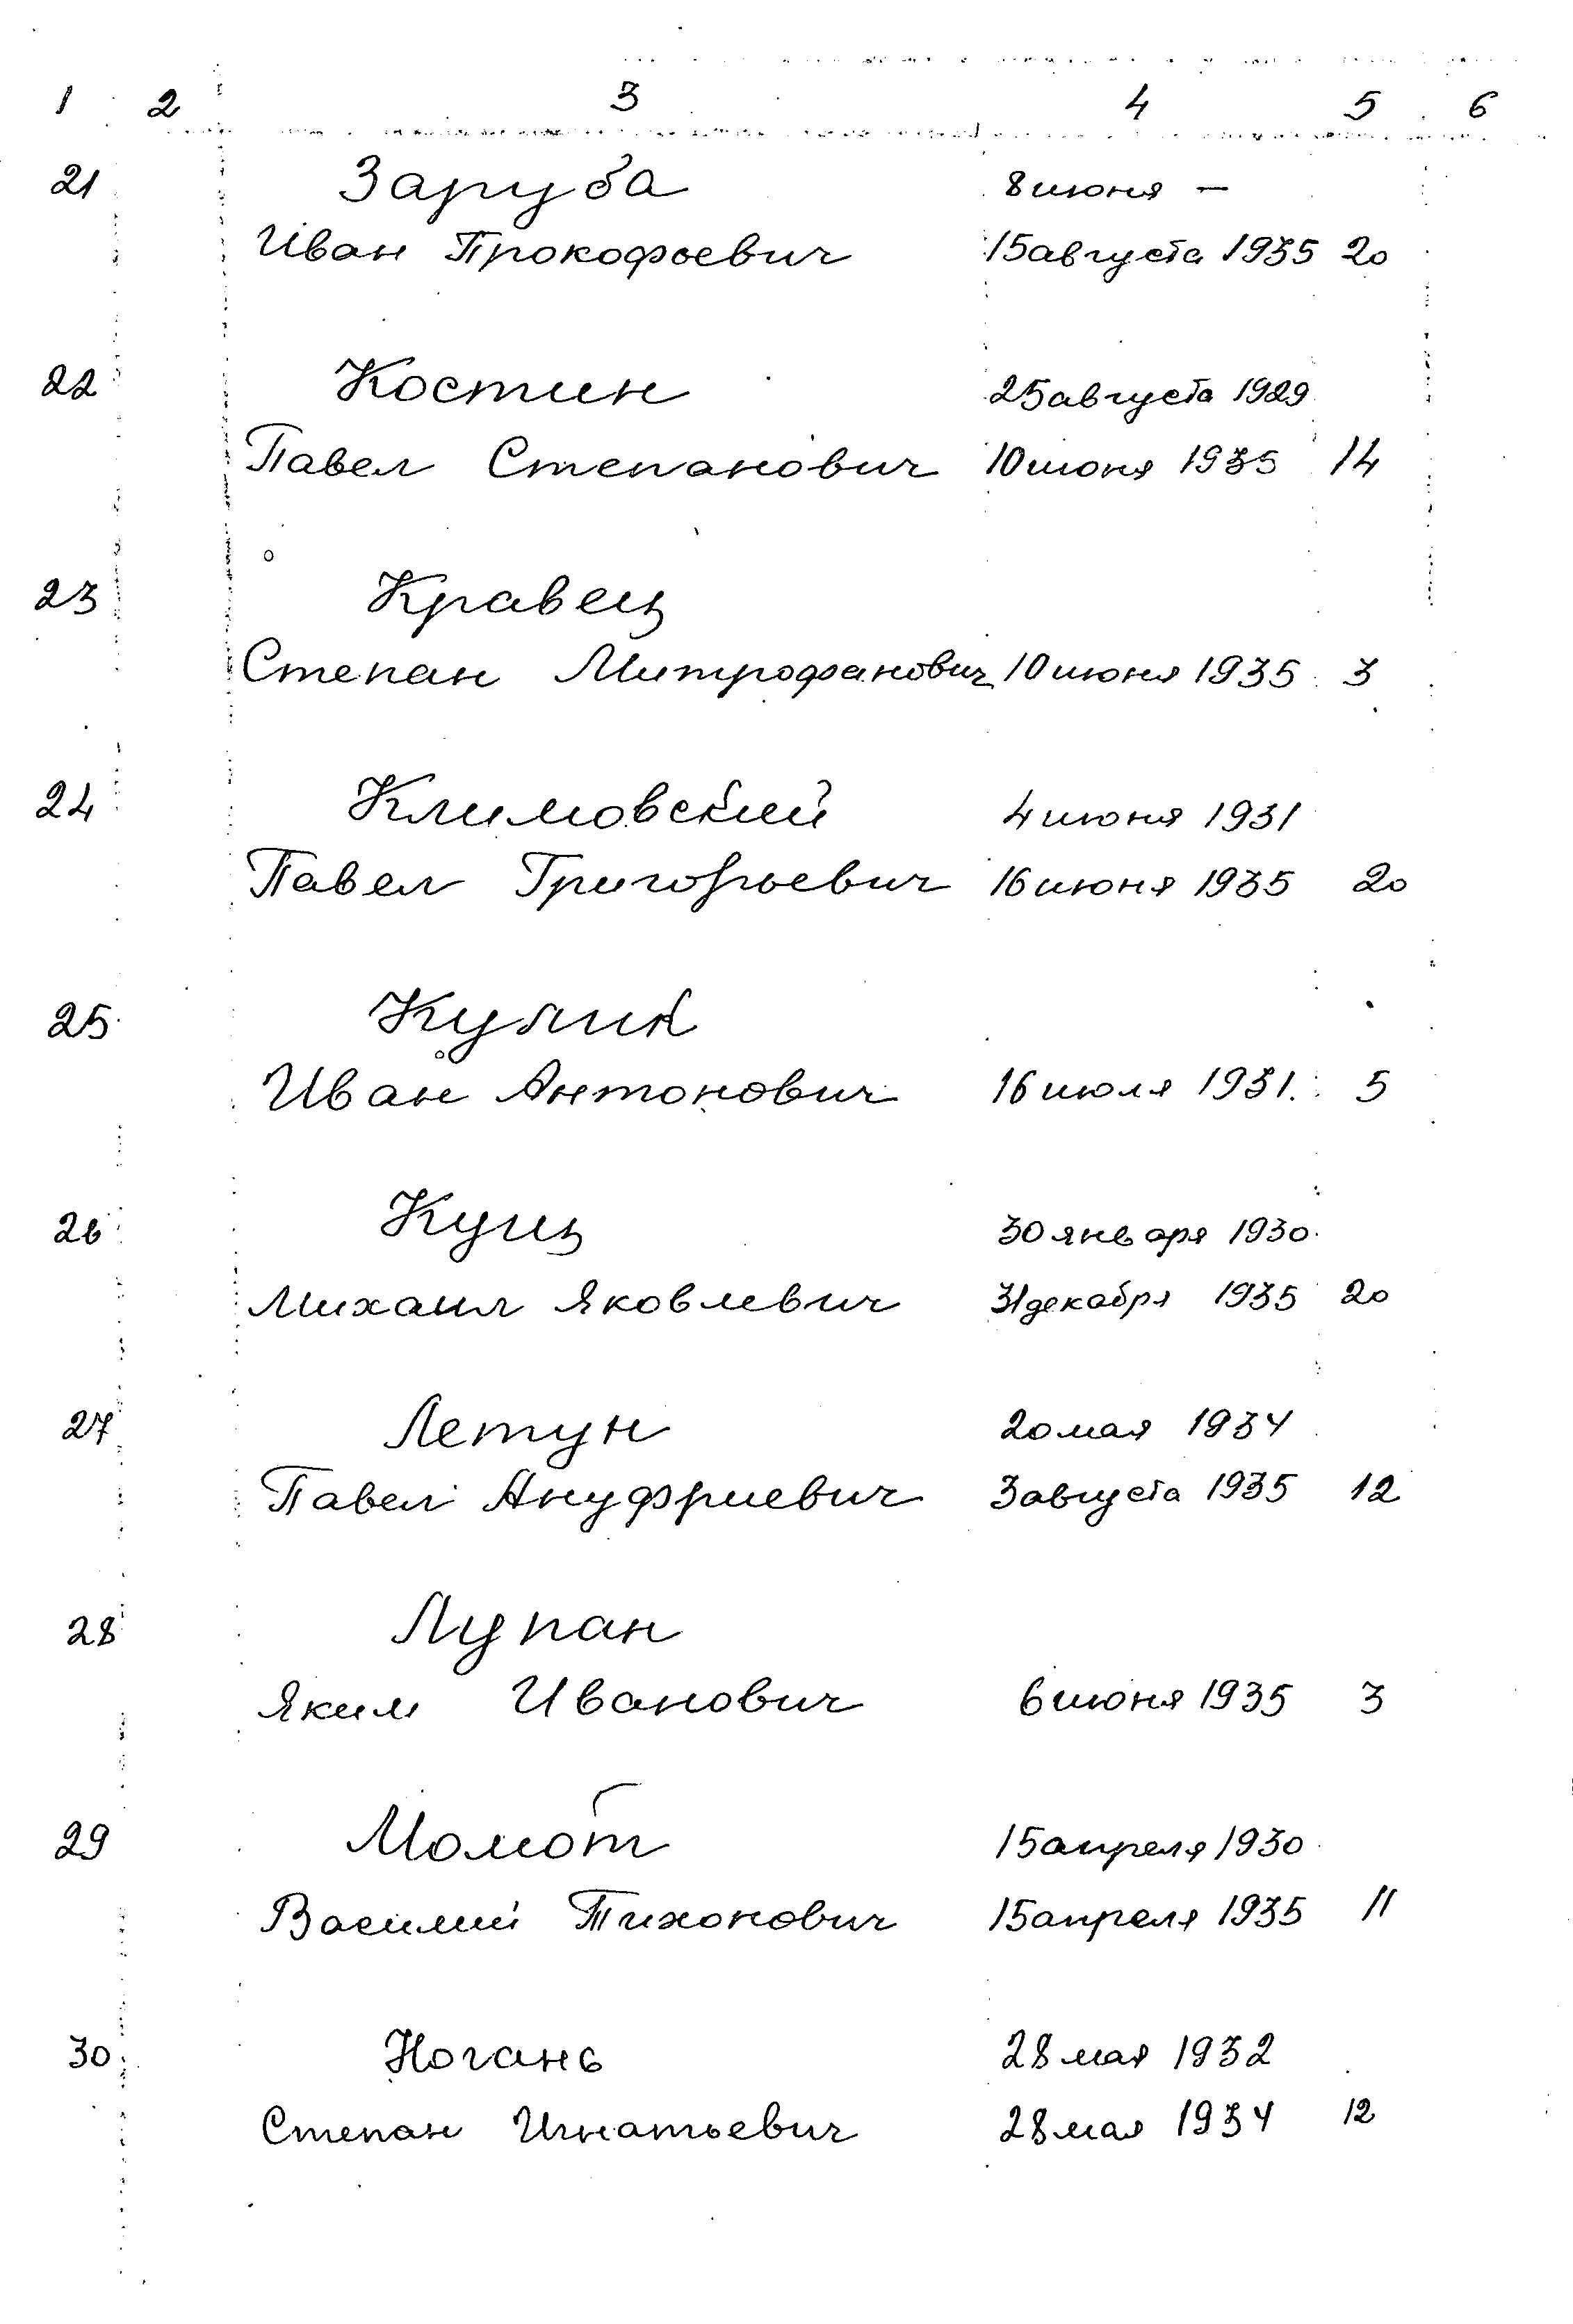 1 2 3 4 5 6
21 Заруба 8 июня —
Иван Прокофьевич 15 августа 1935 20
22 Костин 25 августа 1929
Павел Степанович 10 июня 1935 14
23 Кравец
Степан Митрофанович 10 июня 1935 3
24 Климовский 4 июня 1931
Павел Григорьевич 16 июня 1935 20
25 Кулик
Иван Антонович 16 июля 1931. 5
26 Куц 30 января 1930
Михаил Яковлевич 31 декабря 1935 20
27 Летун 20 мая 1934
Павел Ануфриевич 3 августа 1935 12
28 Лупан
Яким Иванович 6 июня 1935 3
29 Момот 15 апреля 1930
Василий Тихонович 15 апреля 1935 11
30 Ногань 28 мая 1932
Степан Игнатьевич 28 мая 1934 12